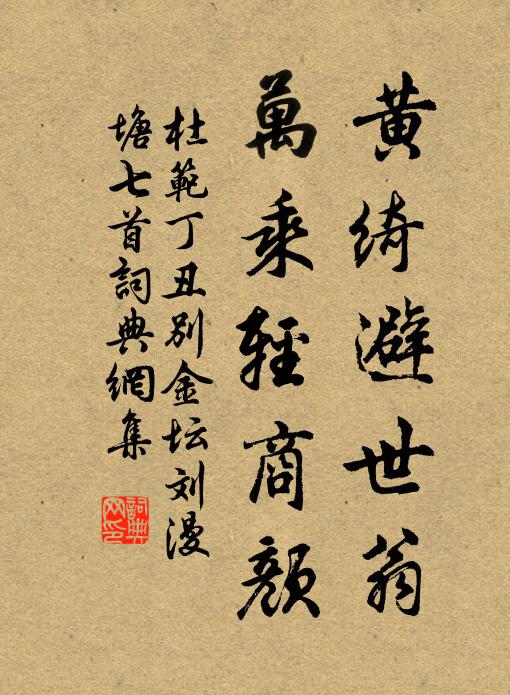 黄绮避世翁
萬乘輕商顏
杜範丁丑别金坛刘漫
塘七首詞典網集
詞典网印